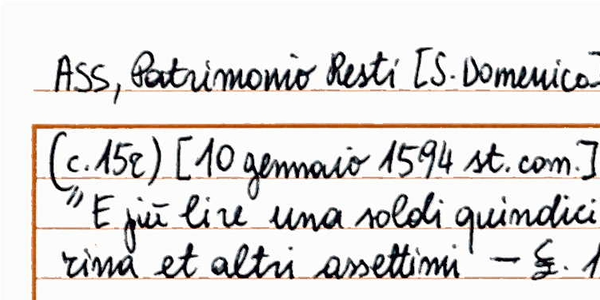 ASS, Patrimonio Resti [S. Domenico]
(c. 15r) [10 gennaio 1594 st. com.]
"E più lire una soldi quindici
rina et altri assettimi – £. 1